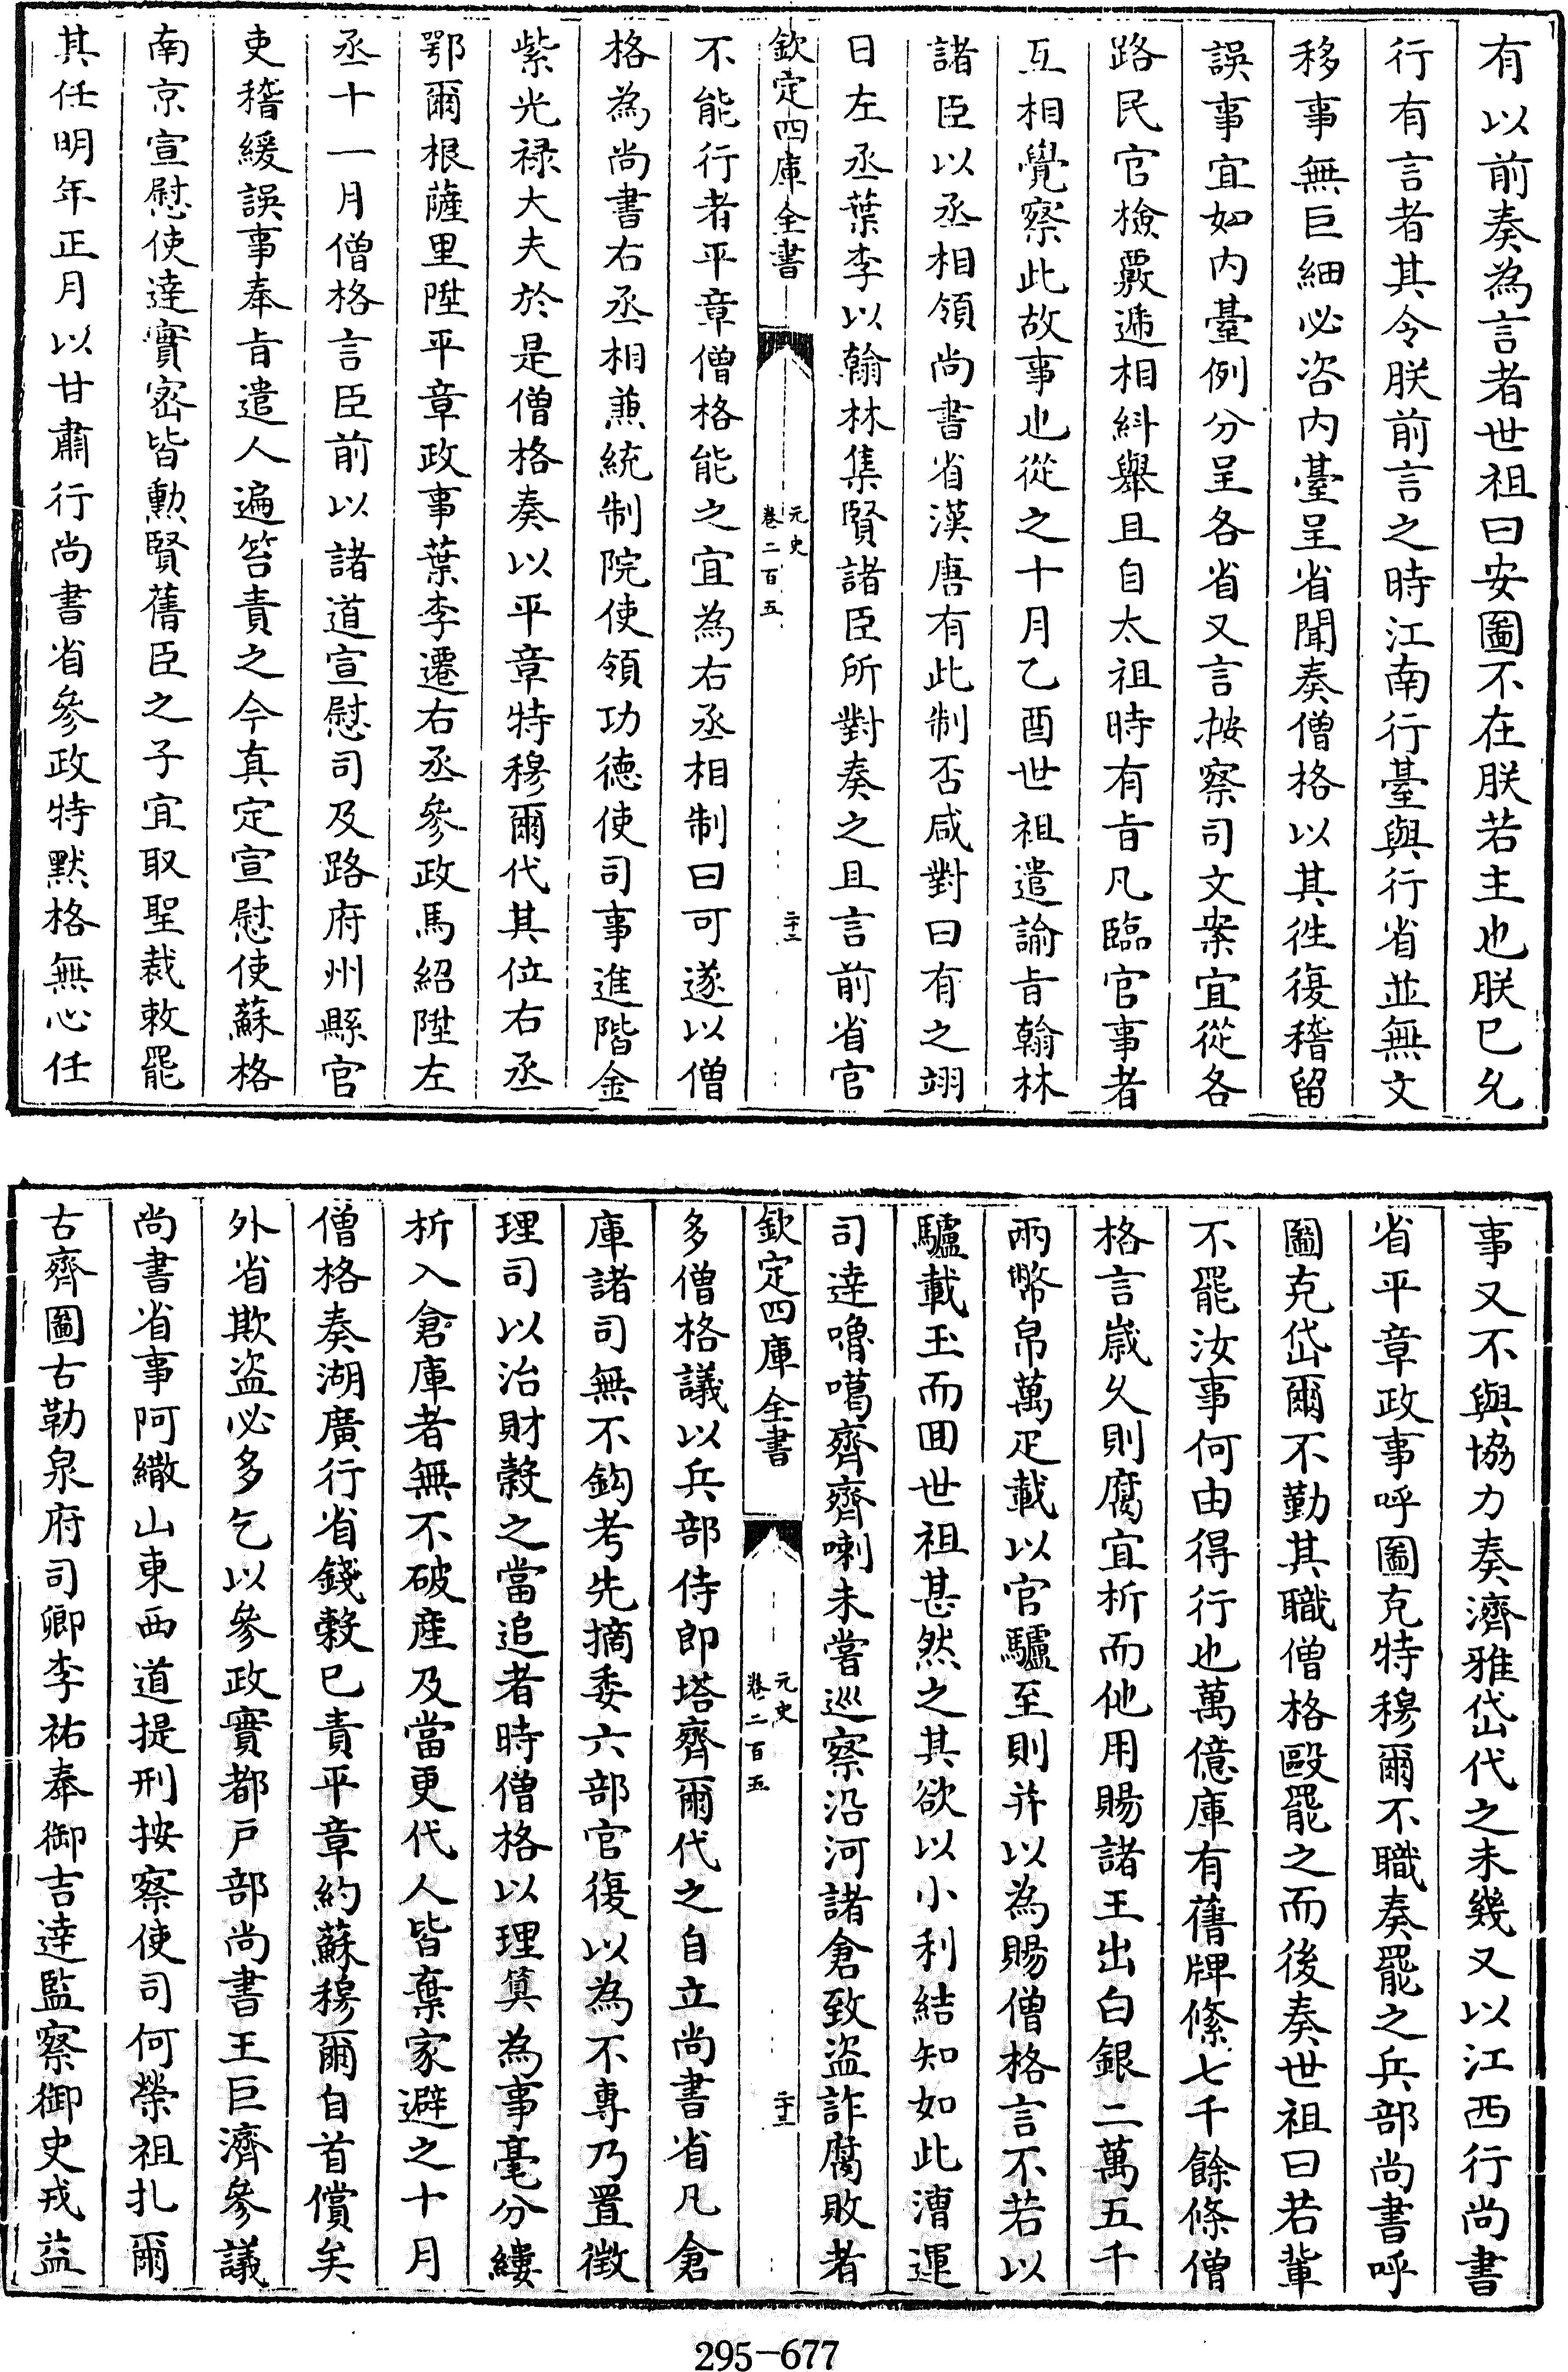 有以前奏為言者世祖曰安圖不在朕若主也朕已允
行有言者其令朕前言之時江南行臺與行省並無文
移事無巨細必咨内臺呈省聞奏僧格以其徃復稽留
誤事宜如内臺例分呈各省又言按察司文案宜從各
路民官檢覈遞相糾舉且自太祖時有㫖凡臨官事者
互相覺察此故事也從之十月乙酉世祖遣諭㫖翰林
諸臣以丞相領尚書省漢唐有此制否咸對曰有之翊
日左丞葉李以翰林集賢諸臣所對奏之且言前省官
欽定四庫全書
元史
卷二百五
二十二
不能行者平章僧格能之宜為右丞相制曰可遂以僧
格為尚書右丞相兼統制院使領功徳使司事進階金
紫光禄大夫於是僧格奏以平章特穆爾代其位右丞
鄂爾根薩里陞平章政事葉李遷右丞參政馬紹陞左
丞十一月僧格言臣前以諸道宣慰司及路府州縣官
吏稽緩誤事奉㫖遣人遍笞責之今真定宣慰使蘇格
南京宣慰使達實密皆勲賢舊臣之子宜取聖裁敕罷
其任明年正月以甘肅行尚書省參政特黙格無心任
事又不與協力奏濟雅岱代之未幾又以江西行尚書
省平章政事呼圖克特穆爾不職奏罷之兵部尚書呼
圖克岱爾不勤其職僧格毆罷之而後奏世祖曰若輩
不罷汝事何由得行也萬億庫有舊牌絛七千餘條僧
格言嵗乆則腐宜析而他用賜諸王出白銀二萬五千
兩幣帛萬疋載以官驢至則并以為賜僧格言不若以
驢載玉而回世祖甚然之其欲以小利結知如此漕運
司達嚕噶齊齊喇未嘗巡察沿河諸倉致盗詐腐敗者
欽定四庫全書
元史
卷二百五
二十三
多僧格議以兵部侍郎塔齊爾代之自立尚書省凡倉
庫諸司無不鈎考先摘委六部官復以為不專乃置徴
理司以治財榖之當追者時僧格以理算為事毫分縷
析入倉庫者無不破産及當更代人皆棄家避之十月
僧格奏湖廣行省錢榖已責平章約蘇穆爾自首償矣
外省欺盗必多乞以參政實都戸部尚書王巨濟參議
尚書省事阿繖山東西道提刑按察使司何榮祖扎爾
古齊圖古勒泉府司卿李祐奉御吉達監察御史戎益
295-677